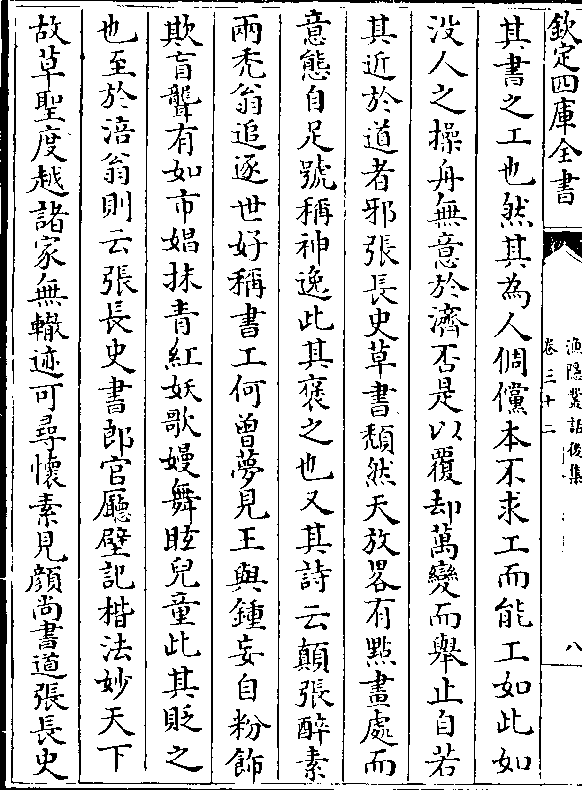 欽定四庫全書
漁隠叢話後集
卷三十二
八
其書之工也然其為人倜儻本不求工而能工如此如
没人之操舟無意於濟否是以覆却萬變而舉止自若
其近於道者邪張長史草書頽然天放畧有點畫處而
意態自足號稱神逸此其褒之也又其詩云顛張醉素
兩秃翁追逐世好稱書工何曾夢見王與鍾妄自粉飾
欺盲聾有如市娼抹青紅妖歌嫚舞眩兒童此其貶之
也至於涪翁則云張長史書郎官廳壁記楷法妙天下
故草聖度越諸家無轍迹可尋懷素見顔尚書道張長史